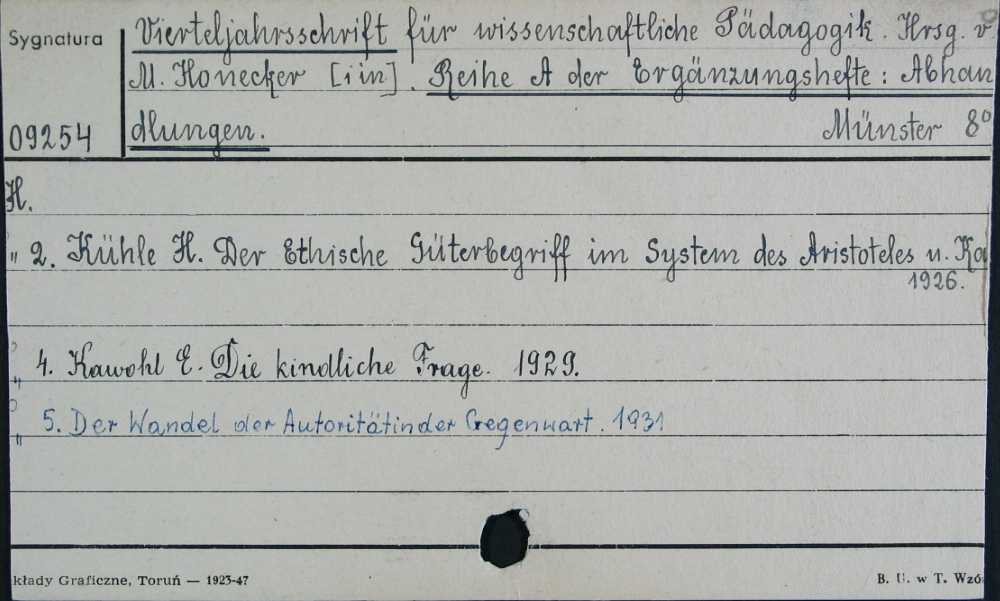 Sygnatura
Vierteljahrsschrift für wissenschaftliche Pädagogik. Hrsg. v
M. Honecker [i in]. Reihe A der Ergänzungshefte: Abhan
09254
dlungen.
Münster 8°
H.
" 2. Kühle H. Der Ethische Güterbegriff im System des Aristoteles u. Ka
1926.
" 4. Kawohl E. Die kindliche Frage. 1929.
" 5. Der Wandel der Autoritätinder Gegenwart. 1931
kłady Graficzne, Toruń — 1923-47
B. U. w T. Wzó